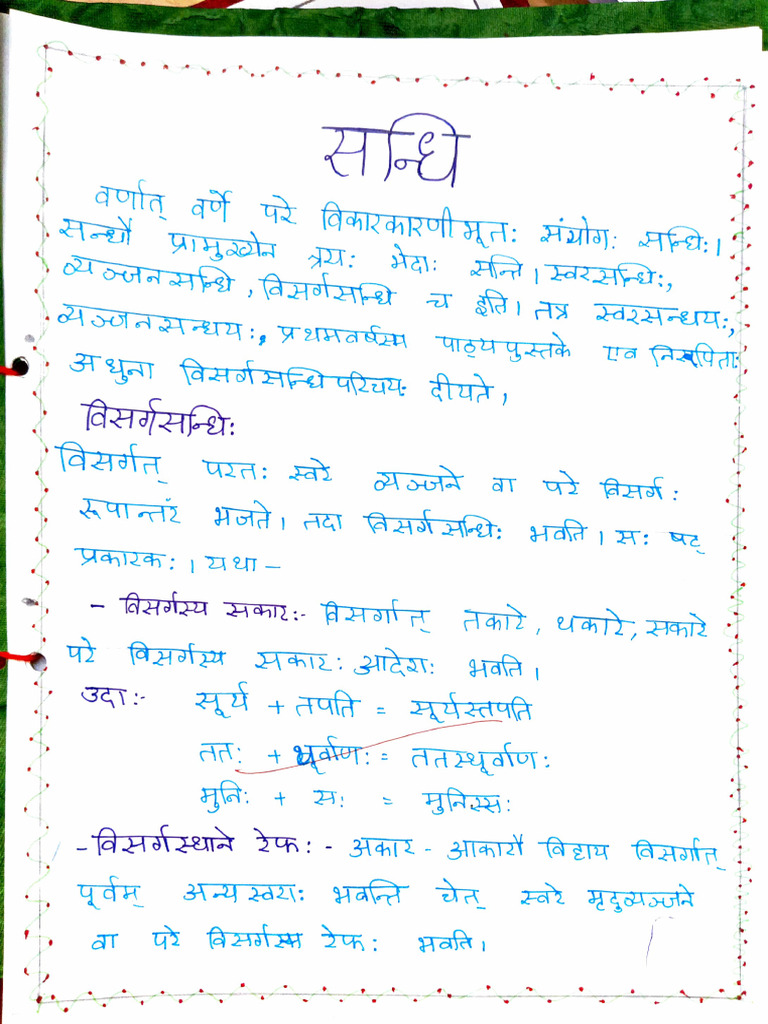 सन्धि
वर्णात् वर्णे परे विकारकारणीभूतः संयोगः सन्धिः।
सन्धौ प्रामुख्येन त्रयः भेदाः सन्ति। स्वरसन्धिः,
व्यञ्जनसन्धि, विसर्गसन्धि च इति। तत्र स्वरसन्धयः,
व्यञ्जनसन्धयः, प्रथमवर्षस्य पाठ्यपुस्तके एव निरूपिताः
अधुना विसर्गसन्धिपरिचयः दीयते,
विसर्गसन्धिः
विसर्गत् परतः स्वरे व्यञ्जने वा परे विसर्गः
रूपान्तरं भजते। तदा विसर्गसन्धिः भवति। सः षट्
प्रकारकः। यथा –
- विसर्गस्य सकारः:- विसर्गात् तकारे, थकारे, सकारे
परे विसर्गस्य सकारः आदेशः भवति।
उदाः- सूर्य + तपति = सूर्यस्तपति
ततः + थूर्वाणः = ततस्थूर्वाणः
मुनिः + सः = मुनिस्सः
- विसर्गस्थाने रेफः:- अकार - आकारौ विहाय विसर्गात्
पूर्वम् अन्यस्वराः भवन्ति चेत् स्वरे मृदुव्यञ्जने
वा परे विसर्गस्य रेफः भवति।